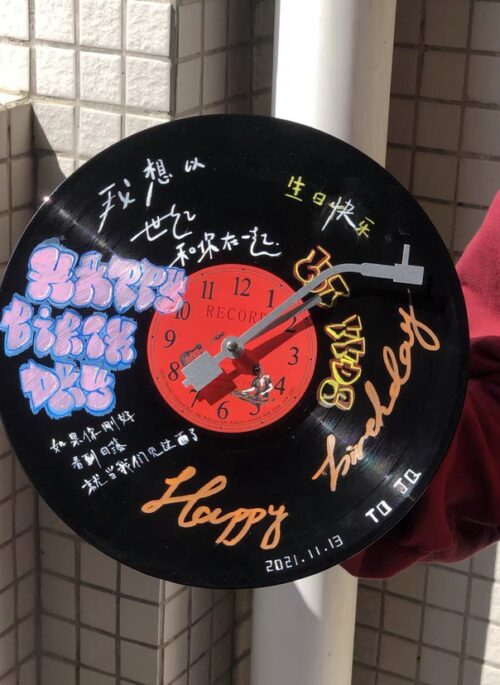 我想以
世纪
和你在一起
生日快乐
HAPPY
BIRTH
DAY
11 12 1
10
RECORD
3
4
5
6
7
如果你刚好
看到日落
就当我们见过面了
Happy
birthday
TO JQ
2021.11.13